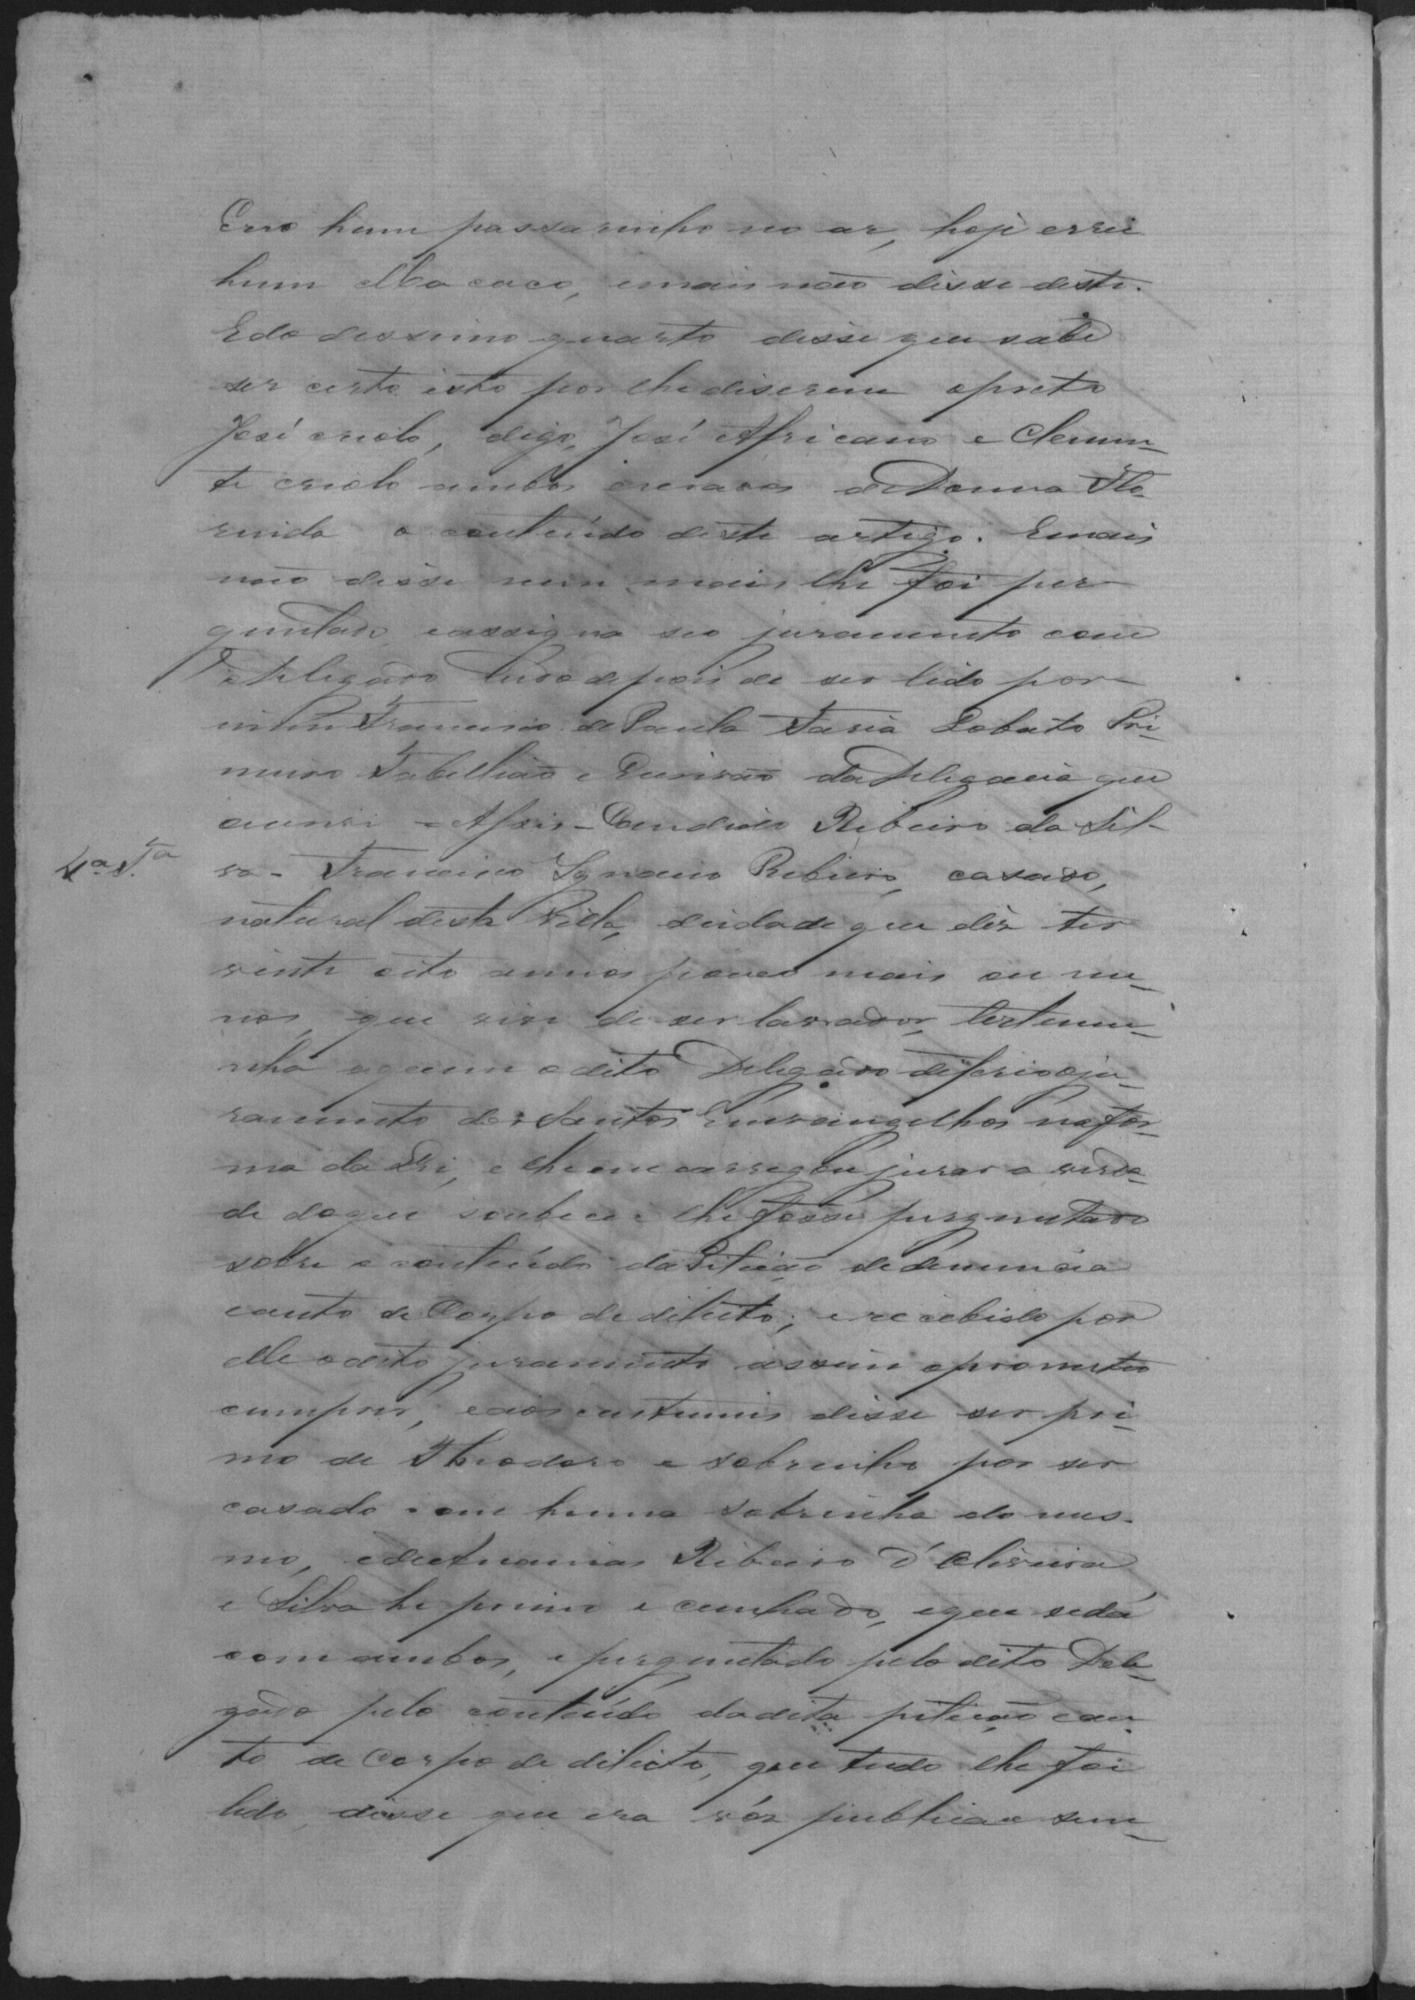 Erro hum passarinho no ar, hoje errei
hum Macaco, emais não disse deste.
Edo dessimo quarto disse que sabe
ser certo isto por lhe diserem o preto
José criolo, digo, José Africano e Clemen-
te criolo ambos escravos de Donna Flo-
rinda o conteúdo deste artigo. Emais
não disse nem mais lhe foi per-
guntado eassigna seo juramento com
o Delegado depois de ser lido por
mim Francisco de Paula Faria Lobato Pri-
meiro Tabellião e Escrivão da Delegacia que
escrevi - Assis - Candido Ribeiro da Sil-
4ª T.ª
va - Francisco Ignacio Ribeiro, casado,
natural desta Villa, deidade que diz ter
vinte oito annos pouco mais ou me-
nos, que vive de ser lavrador, testemu-
nha aquem o dito Delegado deferio oju-
ramento dos Santos Euvangelhos nafor-
ma da Lei, e lhe emcarregou jurar a verda-
de doque soubece e lhe fosse perguntado
sobre o conteúdo da Petição de denuncia
eauto de Corpo de delicto; e recebido por
elle o dito juramento assim o prometeo
cumprir, eaos custumes disse ser pri-
mo de Theodoro e sobrinho por ser
casado com huma sobrinha do mes-
mo, ede Ribeiro d'Oliveira
e Silva he primo e cunhado, eque sedá
com ambos, e perguntado pelo dito Dele-
gado pelo conteúdo dadita petição eau-
to de Corpo de delicto, que tudo lhe foi
lido, disse que era vóz publica e sem-